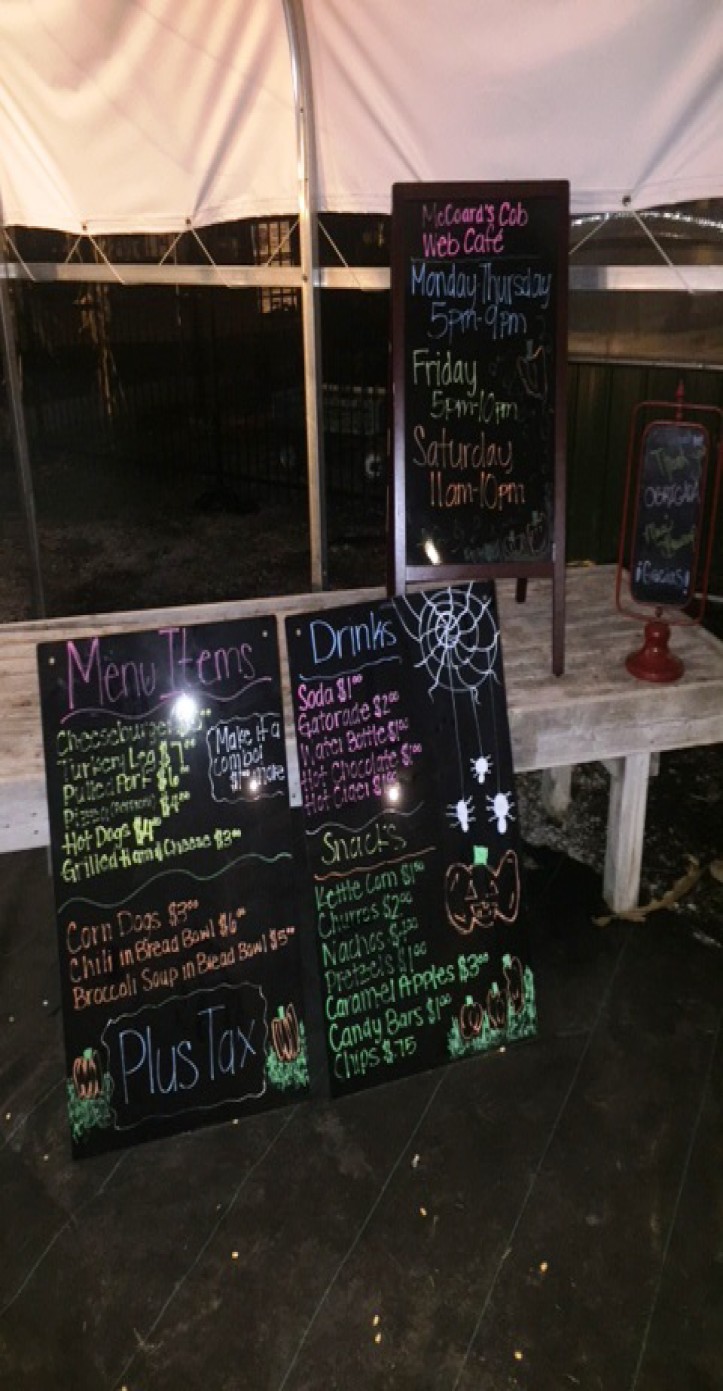 McCoard's Cob
Web Café
Monday-Thursday
5pm-9pm
Friday
5pm-10pm
Saturday
11am-10pm
OBRIGADA
¡Gracias!
Menu Items
Cheeseburger
Turkery Leg $7⁰⁰
Pulled Pork $6⁰⁰
Hot Dogs $4⁰⁰
Grilled Ham & Cheese $3⁰⁰
Make it a
combo!
more
Corn Dogs $3⁰⁰
Chili in Bread Bowl $6⁰⁰
Broccoli Soup in Bread Bowl $5⁰⁰
Plus Tax
Drinks
Soda $1⁰⁰
Gatorade $2⁰⁰
Water Bottle $1⁰⁰
Hot Chocolate $1⁰⁰
Hot Cider
Snacks
Kettle Corn $1⁰⁰
Churros $2⁰⁰
Nachos
Pretzels $1⁰⁰
Caramel Apples $3⁰⁰
Candy Bars $1⁰⁰
Chips $.75